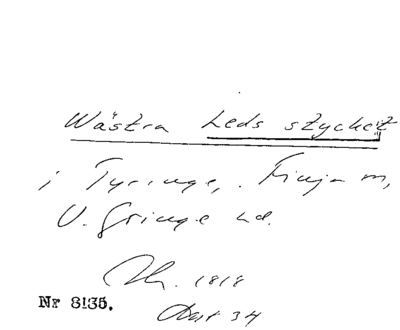 Wästra Leds stycket
i Tyringe, Finja m,
V. Göinge hd.
1818
Nr 8135. Avst 34